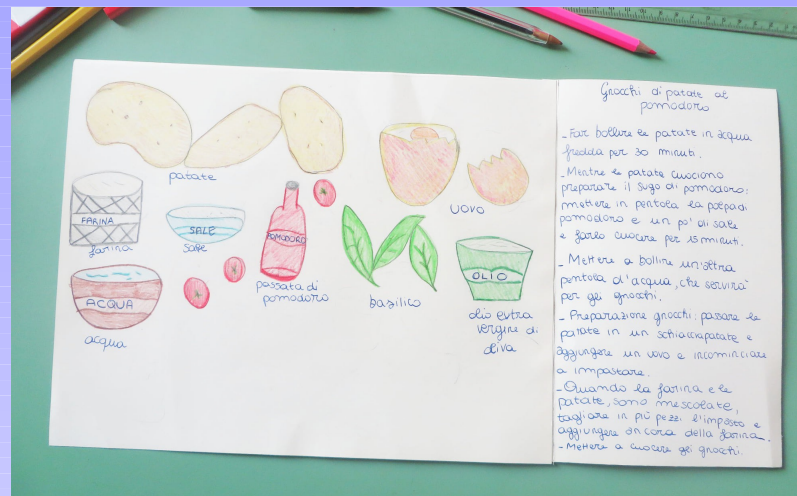 patate
FARINA
farina
SALE
sale
POMODORO
passata di
pomodoro
UOVO
basilico
OLIO
olio extra
vergine di
oliva
ACQUA
acqua
Gnocchi di patate al
pomodoro
- Far bollire le patate in acqua
fredda per 30 minuti.
- Mentre le patate cuociono
preparare il sugo di pomodoro:
mettere in pentola la polpa di
pomodoro e un po' di sale
e farlo cuocere per 15 minuti.
- Mettere a bollire un'altra
pentola d'acqua, che servirà
per gli gnocchi.
- Preparazione gnocchi: passare le
patate in un schiacciapatate e
aggiungere un uovo e incominciare
a impastare.
- Quando la farina e le
patate, sono mescolate,
tagliare in più pezzi l'impasto e
aggiungere ancora della farina.
- Mettere a cuocere gli gnocchi.